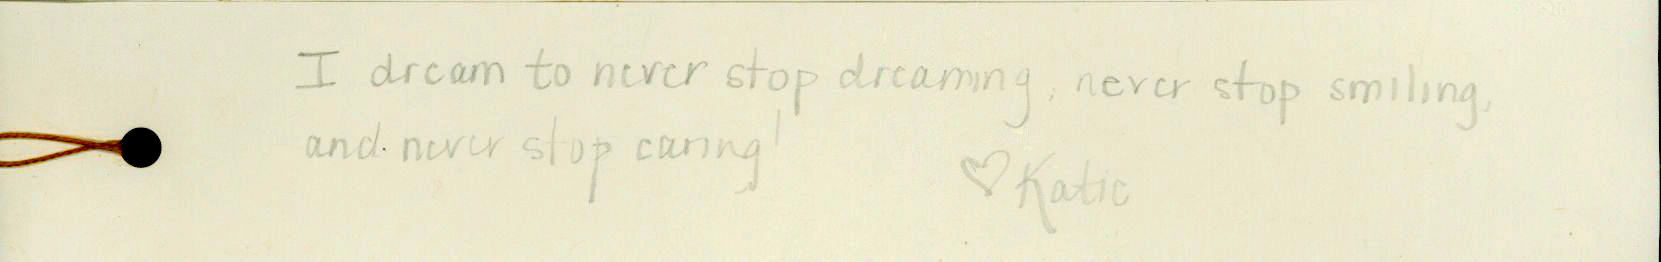 I dream to never stop dreaming, never stop smiling,
and never stop caring!
♡ Katie